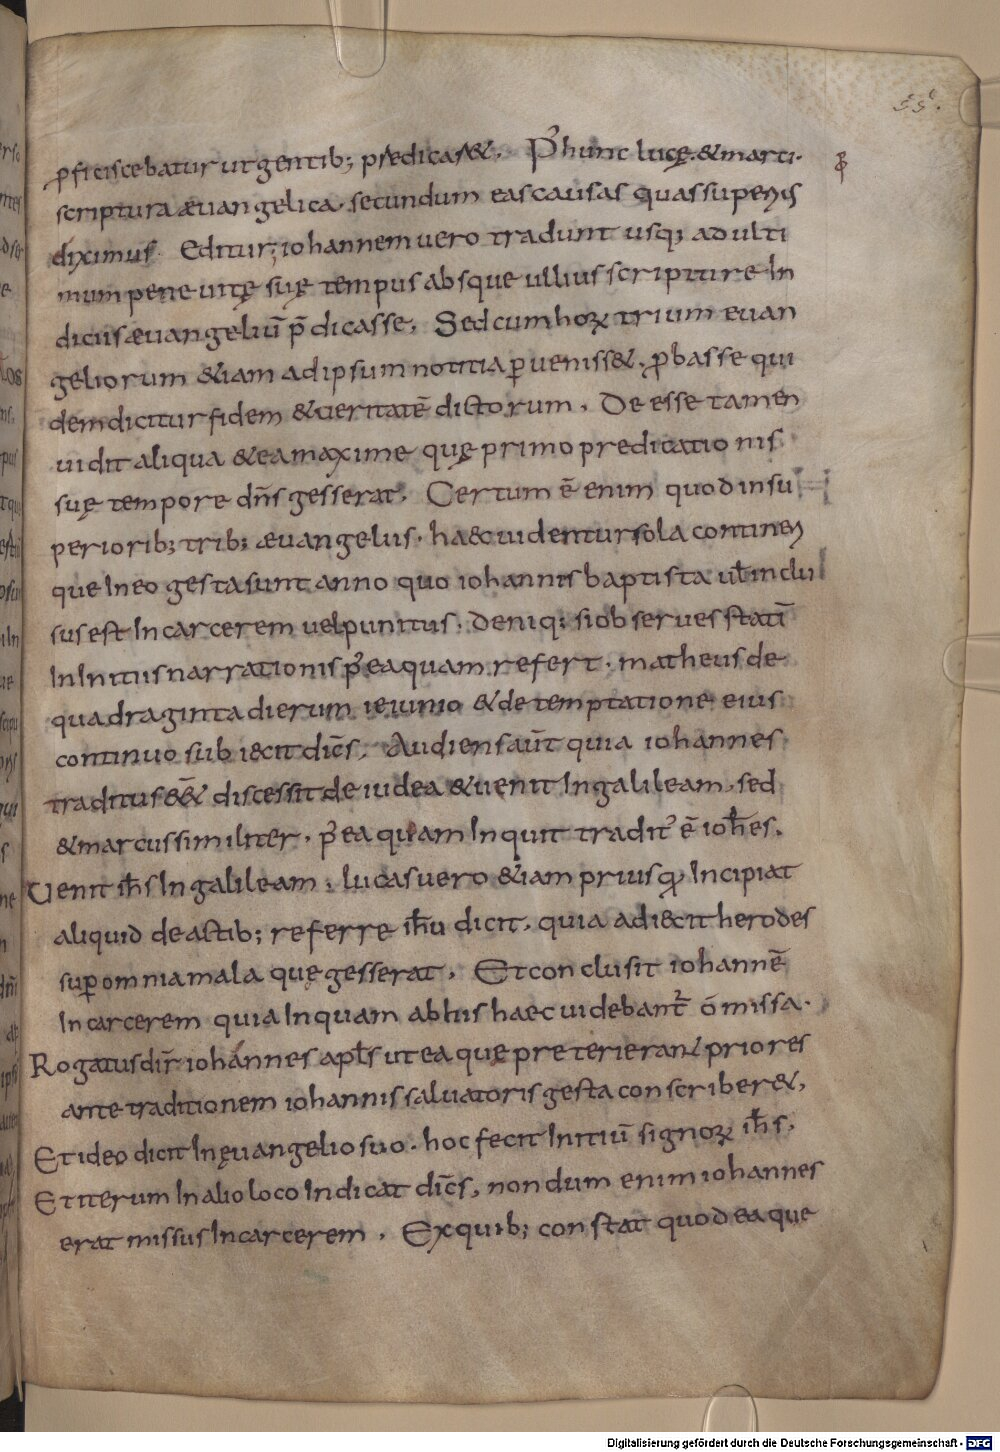 55.
p̱ficiscebatur ut gentib; predicar&. P᷒ hunc lucę. & marci.
scriptura æuangelica. secundum eas causas quas superiꝰ
diximus. Editur; iohannem uero tradunt usq; ad ulti
mum pene uitę suę tempus absque ullius scripture In
diciis æuangeliū p̄dicasse. Sed cum hoꝝ trium euan
geliorum &iam ad ipsum notitia ꝑueniss&. ꝓbasse qui
dem dicitur fidem & ueritatē dictorum. De esse tamen
uidit aliqua & ea maxime quę primo predicationis
suę tempore dn̄s gesserat. Certum ē enim quod in su
periorib; trib; æuangeliis. haec uidentur sola contineri
que In eo gesta sunt anno quo iohannis baptista uł inclu
sus est In carcerem uel punitus. deniq; si obserues statī
In Initiis narrationis p᷒ ea quam refert. matheus de
quadraginta dierum ieiunio & de temptatione eius
continuo subiecit dic̄s. Audiens aūt quia iohannes
traditus ess& discessit de iudea & uenit In galileam. sed
& marcus similiter. p᷒ ea quam Inquit traditꝰ ē ioh̄es.
Uenit ih̄s In galileam; lucas uero &iam priusꝙ Incipiat
aliquid de actib; referre ih̄u dicit. quia adiecit herodes
suꝑ omnia mala quę gesserat. Et conclusit iohannē
In carcerem quia Inquam ab his haec uidebant᷒ omissa.
Rogatus dir̄ iohannes apl̄s ut ea quę preterierant priores
ante traditionem iohannis saluatoris gesta conscriber&.
Et ideo dicit In ęuangelio suo. hoc fecit Initiū signoꝝ ih̄s.
Et iterum In alio loco Indicat dic̄s. nondum enim iohannes
erat missus In carcerem. Ex quib; constat quod ea que
Digitalisierung gefördert durch die Deutsche Forschungsgemeinschaft - DFG